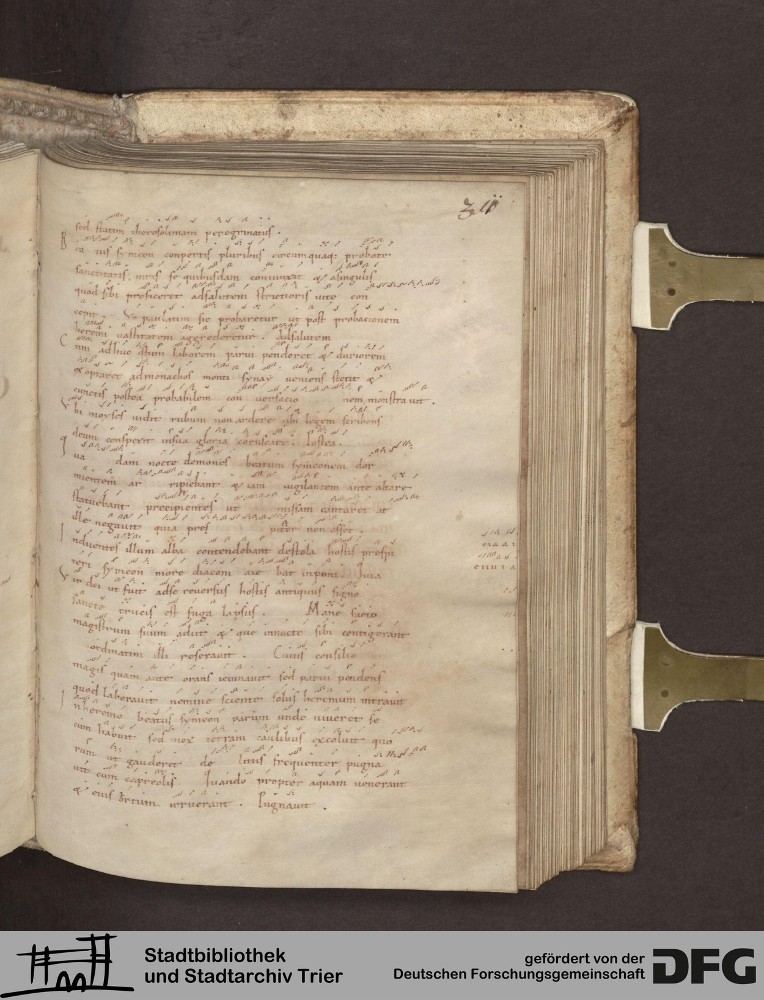 sed statim iherosolimam peregrinatus.
B ea tus symeon conpertis pluribus circumquaq; probate
sanctitatis quibusdam et a singulis
quod sibi proficeret ad salutem strictioris uite con
cepit. Ut paulatim sic probaretur ut post probacionem
heremi uastitatem aggrederetur. Ad salutem
C um adhuc istum laborem parui penderet & duriorem
exoptaret ad monachos monti synay ueniens stetit &
cunctis postea probabilem con uersacio nem monstrauit.
V bi moyses uidit rubum non ardere ubi legem scribens
deum conspexit in sua gloria coruscare. Postea.
q ua dam nocte demones beatum symeonem dor
mientem ar ripiebant & iam uigilantem ante altare
statuebant precipientes ut missam cantaret at
ille negauit quia pres piter non esset.
I nduentes illum alba contendebant de stola hostis
symeon more diaconi inponi. Quia
V ir dei ut fuit ad se reuersus hostis antiquus signo
sancte crucis est fuga lapsus. Mane facto
magistrum suum adiit & que in nocte sibi contigerant
ordinatim illi reserauit. Cuius consilio
magis quam ante orans ieiunauit sed parui pendens
quod laborauit nemine sciente solus heremum intrauit
I n heremo beatus symeon parum unde uiueret se
cum habuit sed mox terram caulibus excoluit quo
rum ut gauderet de litiis frequenter pugna
uit cum capreolis. Quando propter aquam uenerant
& eius ortum intrauerant. Pugnauit.
Stadtbibliothek
und Stadtarchiv Trier
gefördert von der
Deutschen Forschungsgemeinschaft DFG